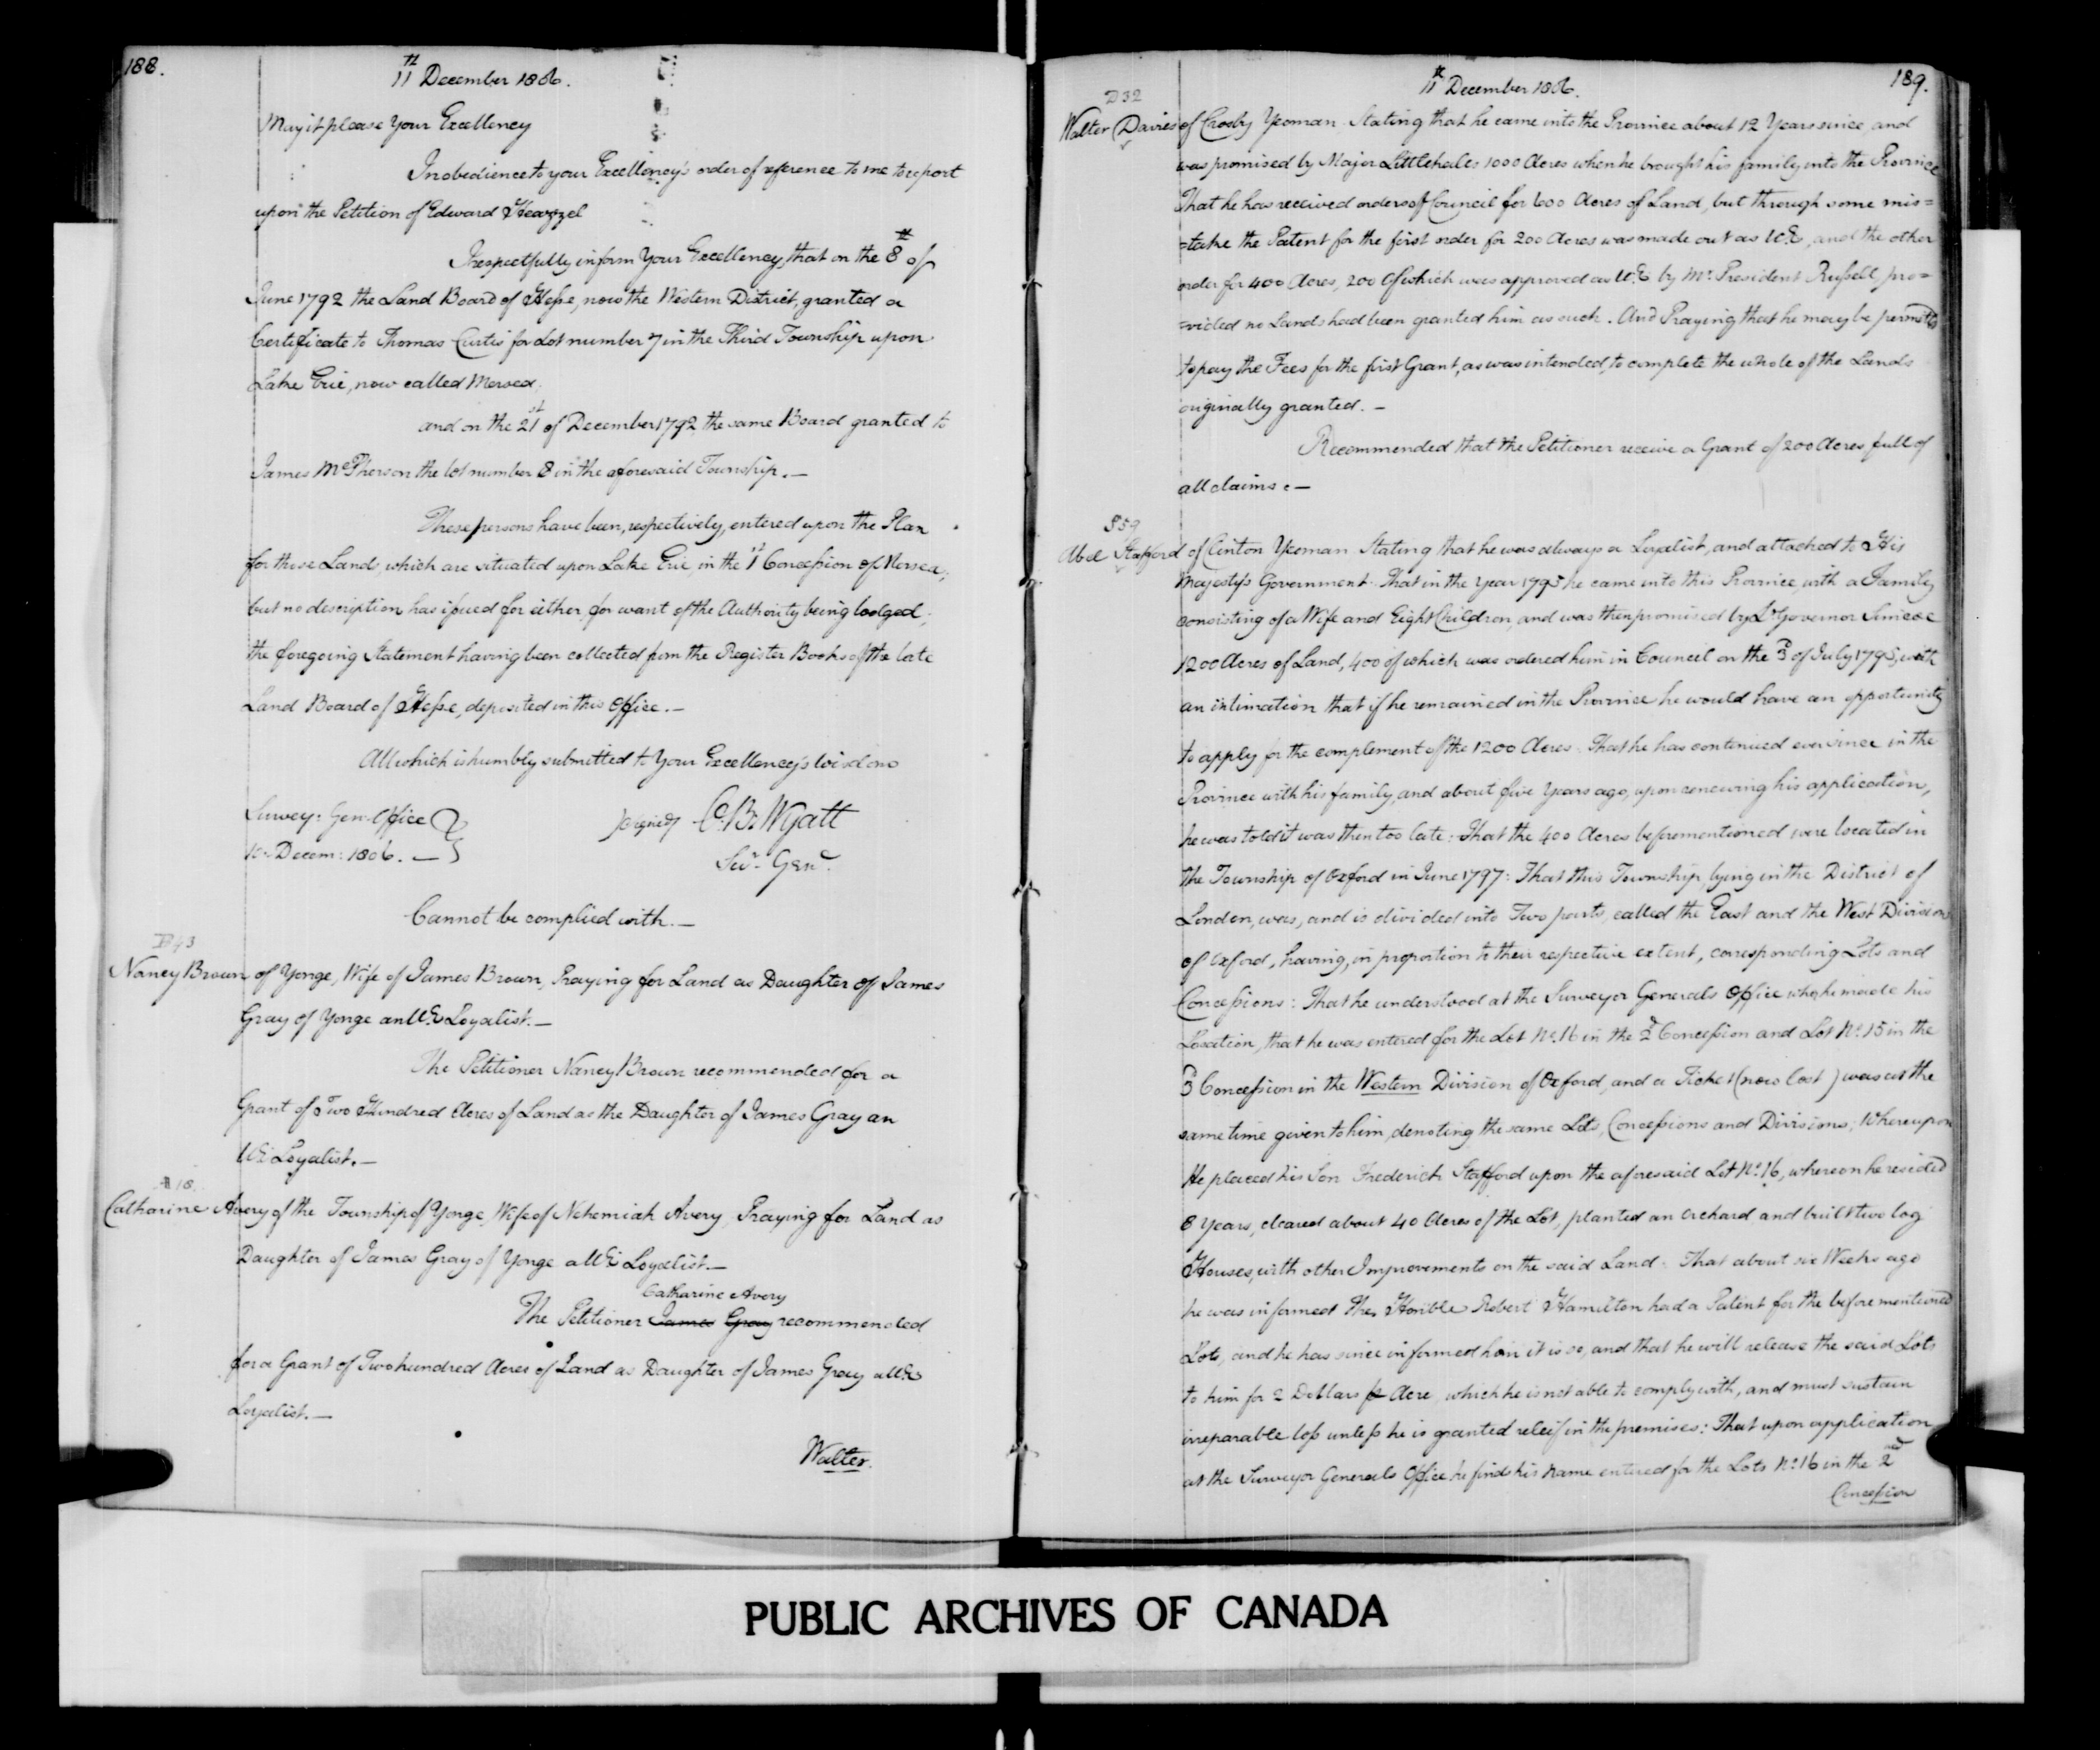 188.
11th December 1806.
May it please Your Excellency
In obedience to your Excellency's order of reference to me to report
upon the Petition of Edward
I respectfully inform Your Excellency, that on the 8th of
June 1792 the Land Board of Hesse, now the Western District, granted a
Certificate to Thomas Curtis for Lot number 7 in the Third Township upon
Lake Erie, now called Mersea.
and on the 21st of December 1792 the same Board granted to
James McPherson the lot number 8 in the aforesaid Township. —
These persons have been, respectively, entered upon the Plan
for those Lands, which are situated upon Lake Erie, in the 1st Concession of Mersea;
but no description has issued for either, for want of the Authority being lodged;
the foregoing Statement having been collected from the Register Books of the late
Land Board of Hesse, deposited in this Office. —
All which is humbly submitted to Your Excellency's wisdom
Survey: Gen: Office
10 Decem: 1806. —
signed C. B. Wyatt
Survr. Genl.
Cannot be complied with. —
B 43
Nancy Brown of Yonge, Wife of James Brown, Praying for Land as Daughter of James
Gray of Yonge an U.E. Loyalist. —
The Petitioner Nancy Brown recommended for a
Grant of Two Hundred Acres of Land as the Daughter of James Gray an
U.E. Loyalist. —
A 18
Catharine Avery of the Township of Yonge, Wife of Nehemiah Avery, Praying for Land as
Daughter of James Gray of Yonge a U.E. Loyalist. —
Catharine Avery
The Petitioner James Gray recommended
for a Grant of Two hundred Acres of Land as Daughter of James Gray a U.E.
Loyalist. —
Walter.
11th December 1806.
189.
D 32
Walter Davies of Crosby Yeoman. Stating that he came into the Province about 12 Years since, and
was promised by Major Littlehales 1000 Acres when he brought his family into the Province
That he has received orders of Council for 600 Acres of Land, but through some mis=
=take the Patent for the first order for 200 Acres was made out as U.E., and the other
order for 400 Acres, 200 of which was approved as U.E. by Mr. President Russell, pro=
=vided no Lands had been granted him as such. And Praying that he may be permitted
to pay the Fees for the first Grant, as was intended, to complete the whole of the Lands
originally granted. —
Recommended that the Petitioner receive a Grant of 200 Acres full of
all claims. —
S 59
Abel Stafford of Clinton Yeoman. Stating that he was always a Loyalist, and attached to His
Majesty's Government. That in the Year 1795 he came into this Province, with a Family
consisting of a Wife and Eight Children, and was then promised by Lt. Governor Simcoe
1200 Acres of Land, 400 of which was ordered him in Council on the 3d of July 1795, with
an intimation that if he remained in the Province he would have an opportunity
to apply for the complement of the 1200 Acres. That he has continued ever since in the
Province with his family, and about five Years ago, upon renewing his application,
he was told it was then too late: That the 400 Acres beforementioned were located in
the Township of Oxford in June 1797: That this Township, lying in the District of
London, was, and is divided into Two parts, called the East and the West Divisions
of Oxford, having, in proportion to their respective extent, corresponding Lots and
Concessions: That he understood at the Surveyor Generals Office when he made his
Location, that he was entered for the Lot No. 16 in the 2d Concession and Lot No. 15 in the
3d Concession in the Western Division of Oxford, and a Ticket (now lost) was at the
same time given to him, denoting the same Lots, Concessions and Divisions; Whereupon
He placed his Son Frederick Stafford upon the aforesaid Lot No. 16, whereon he resided
8 Years, cleared about 40 Acres of the Lot, planted an orchard, and built two log
Houses, with other Improvements on the said Land. That about six Weeks ago
he was informed the Honble Robert Hamilton had a Patent for the before mentioned
Lots, and he has since informed him it is so, and that he will release the said Lots
to him for 2 Dollars p Acre, which he is not able to comply with, and must sustain
irreparable loss unless he is granted releif in the premises: That upon application
at the Surveyor Generals Office he finds his name entered for the Lots No. 16 in the 2nd
Concession
PUBLIC ARCHIVES OF CANADA